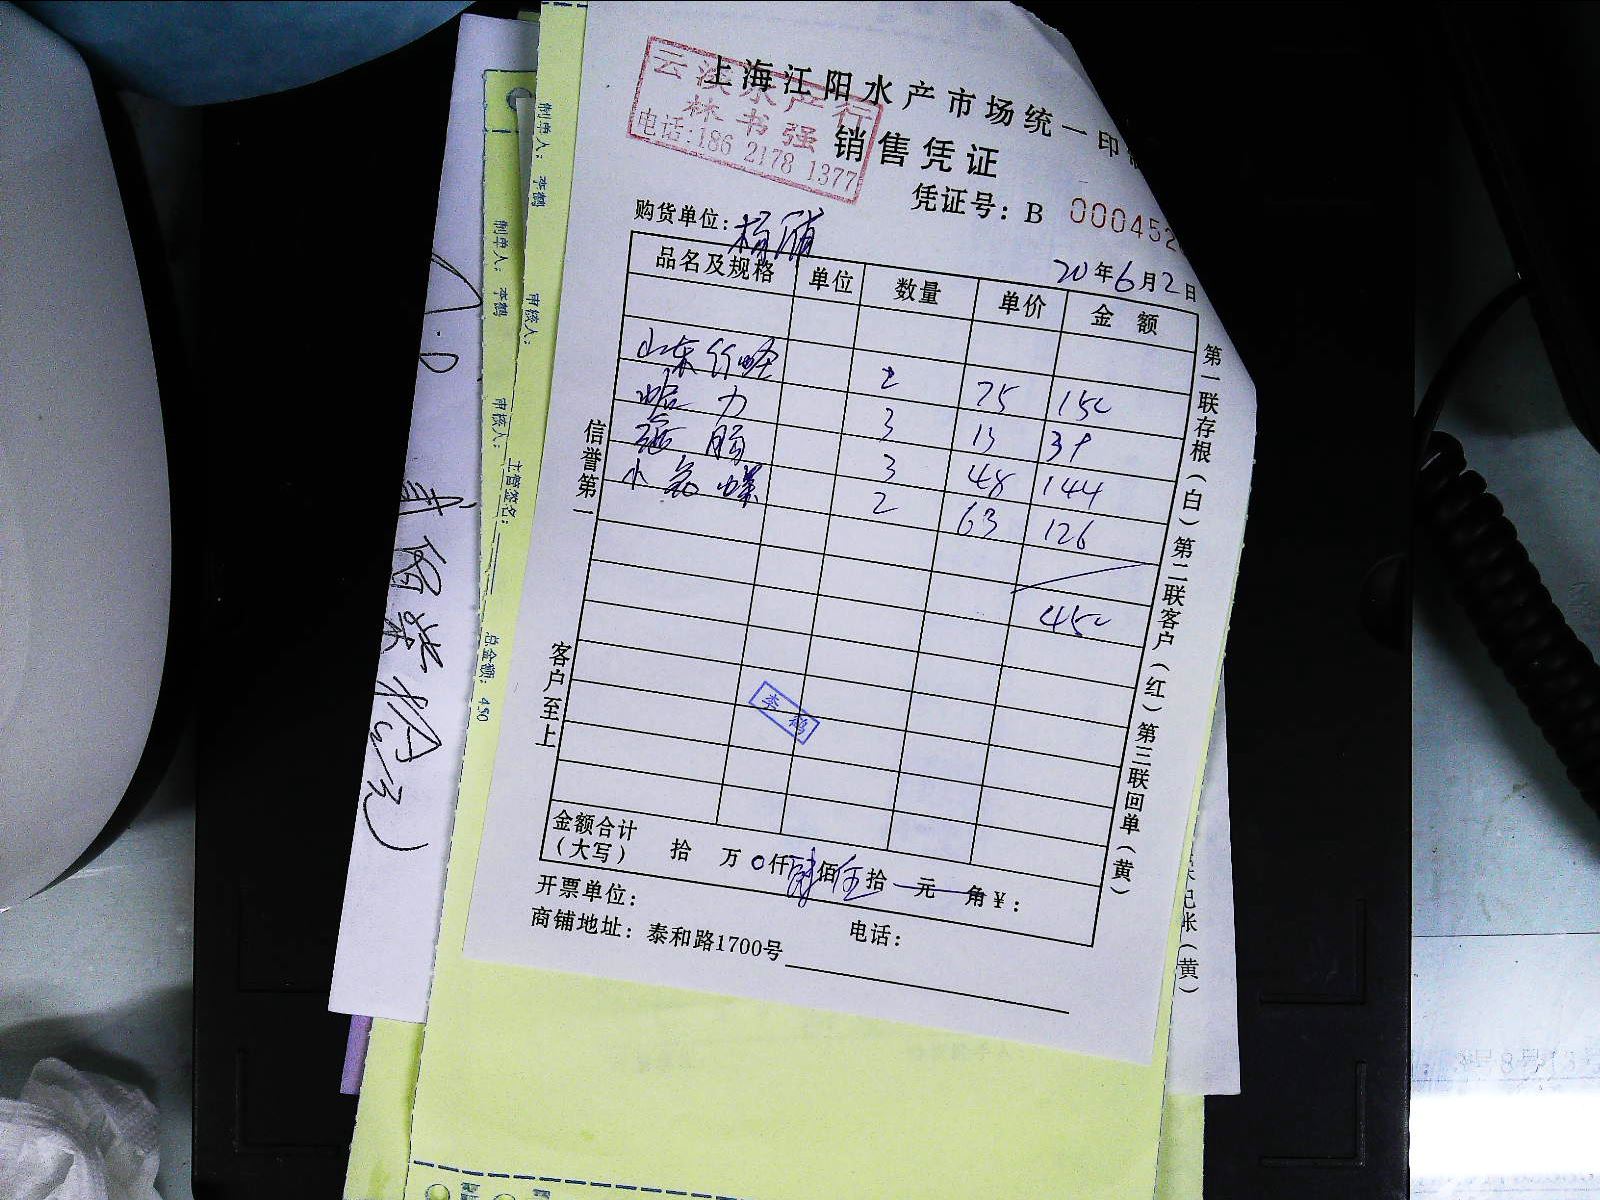 上海江阳水产市场统一印
水产行
林书强
电话:186 2178 1377
销售凭证
凭证号：B 000452
购货单位：杨
20年6月2日
品名及规格 单位 数量 单价 金额
山东竹蛏 2 75 150
蛤力 3 13 39
海肠 3 48 144
水 螺 2 63 126
450
李鹤
金额合计（大写） 拾 万 0仟肆佰伍拾 元 角¥：
开票单位：
商铺地址：泰和路1700号
电话：
信誉第一
客户至上
第一联存根（白）第二联客户（红）第三联回单（黄）
制单人：李鹤
审核人：
制单人：李鹤
审核人：
主管签名：
总金额：450
记账（黄）